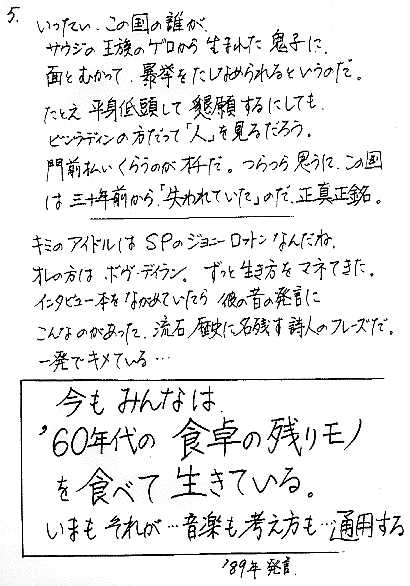 5.
いったい、この国の誰が、
サウジの王族のゲロから生まれた鬼子に、
面とむかって、暴挙をたしなめられるというのだ。
たとえ平身低頭して懇願するにしても、
ビンラディンの方だって「人」を見るだろう。
門前払いくらうのがオチだ。つらつら思うに、この国
は三十年前から「失われていた」のだ、正真正銘。
キミのアイドルはSPのジョニーロットンなんだね。
オレの方はボヴ・デイラン。ずっと生き方をマネてきた。
インタビュー本をながめていたら彼の昔の発言に
こんなのがあった、流石歴史に名残す詩人のフレーズだ。
一発でキメている…
今もみんなは、
'60年代の食卓の残りモノ
を食べて生きている。
いまもそれが…音楽も考え方も…通用する
'89年発言